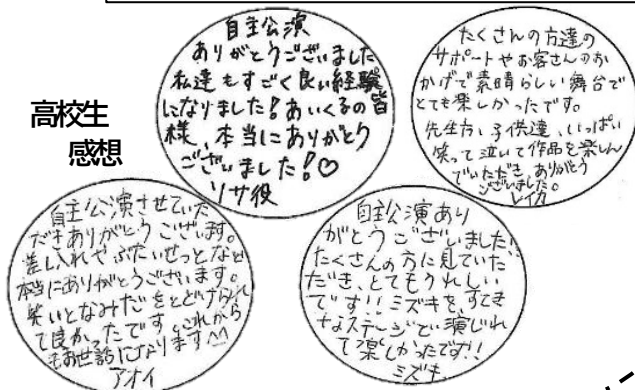 高校生
感想
自主公演
ありがとうございました
私達もすごく良い経験
になりました!あいくるの皆
様、本当にありがとう
ございました!♡
リサ役
たくさんの方達の
サポートやお客さんのお
かげで素晴らしい舞台で
とても楽しかったです。
先生方、子供達、いっぱい
笑って泣いて作品を楽しん
でいただき、ありがとう
ございました。
レイカ
自主公演させていた
だきありがとうございます。
差し入れやぶたいせっとなど
本当にありがとうございます。
笑いとなみだをとどけられ
て良かったです。これから
もお世話になります^^
アオイ
自主公演あり
がとうございました!
たくさんの方に見ていた
だき、とてもうれしい
です!!ミズキを、すてき
なステージで演じれ
て楽しかったです!!
ミズキ